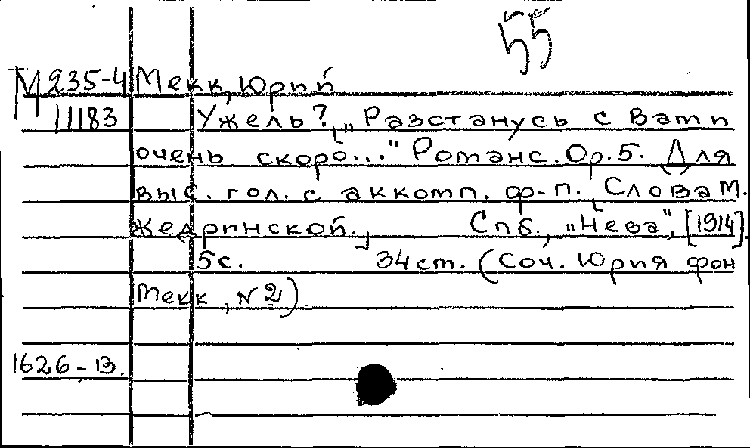 55
М 235-4 Мекк, Юрий
11183 Ужель? „Разстанусь с Вами
очень скоро..." Романс. Op. 5. Для
выс. гол. с аккомп. ф-п. [Слова М.
Жедринской.] Спб., „Нева", [1914].
5с. 34см. (Соч. Юрия фон
Мекк, №2)
1626-13.